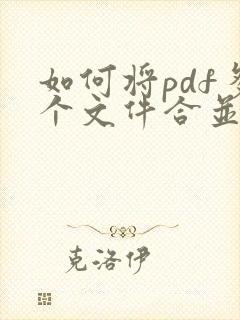 如何将pdf多
个文件合并
克洛伊